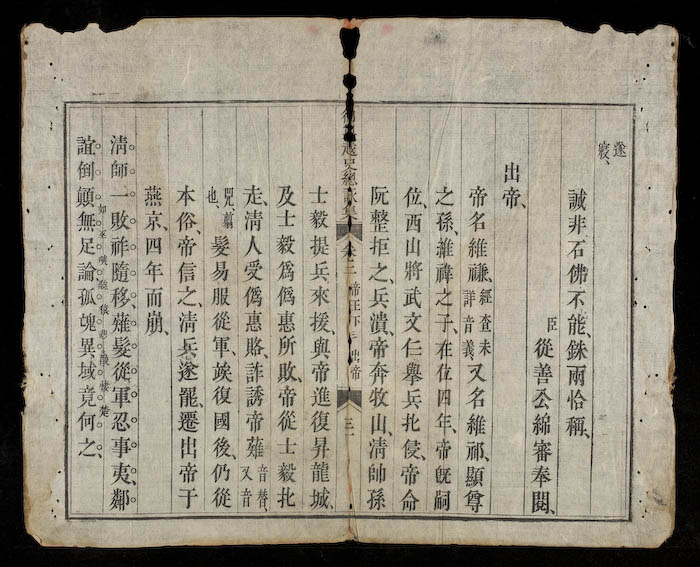 遂
寢、
誠非石佛不能銖兩恰稱、
臣從善公綿審奉閱、
出帝、
帝名維謙、經查未詳音義、又名維祁、顯尊
之孫、維禕之子、在位四年、帝既嗣
位、西山將武文仁舉兵北侵、帝命
阮整拒之、兵潰、帝奔牧山、清帥孫
越史總詠集 卷三 帝王下 出帝 三一
士毅提兵來援、與帝進復昇龍城、
及士毅爲僞惠所敗、帝從士毅北
走、清人受僞惠賂、詐誘帝薙音替、又音
兕、翦也、髮易服從軍、俟復國後、仍從
本俗、帝信之、清兵遂罷、遷出帝于
燕京、四年而崩、
清師一敗祚隨移、薙髮從軍忍事夷、鄰
如巫峽聽猿悲酸悽楚
誼倒顛無足論、孤魂異域竟何之、